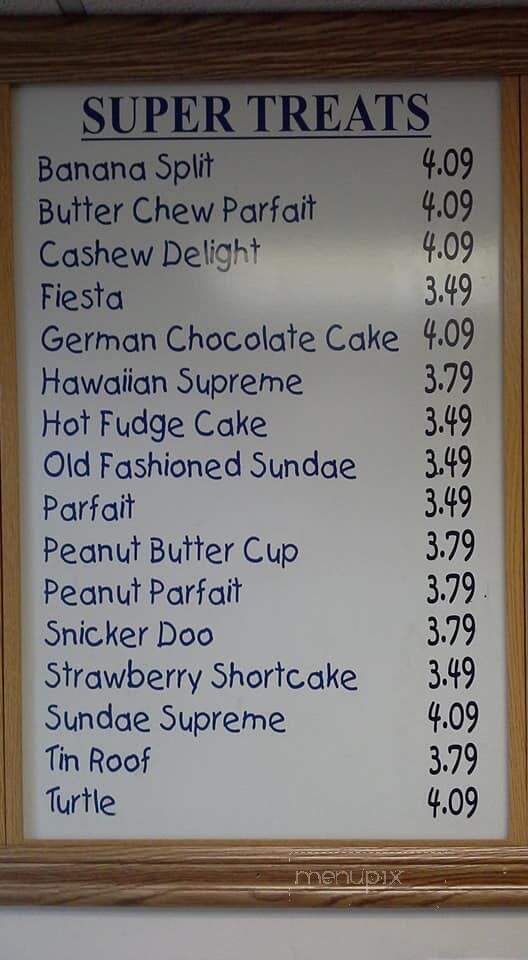 SUPER TREATS
Banana Split 4.09
Butter Chew Parfait 4.09
Cashew Delight 4.09
Fiesta 3.49
German Chocolate Cake 4.09
Hawaiian Supreme 3.79
Hot Fudge Cake 3.49
Old Fashioned Sundae 3.49
Parfait 3.49
Peanut Butter Cup 3.79
Peanut Parfait 3.79
Snicker Doo 3.79
Strawberry Shortcake 3.49
Sundae Supreme 4.09
Tin Roof 3.79
Turtle 4.09
menupix